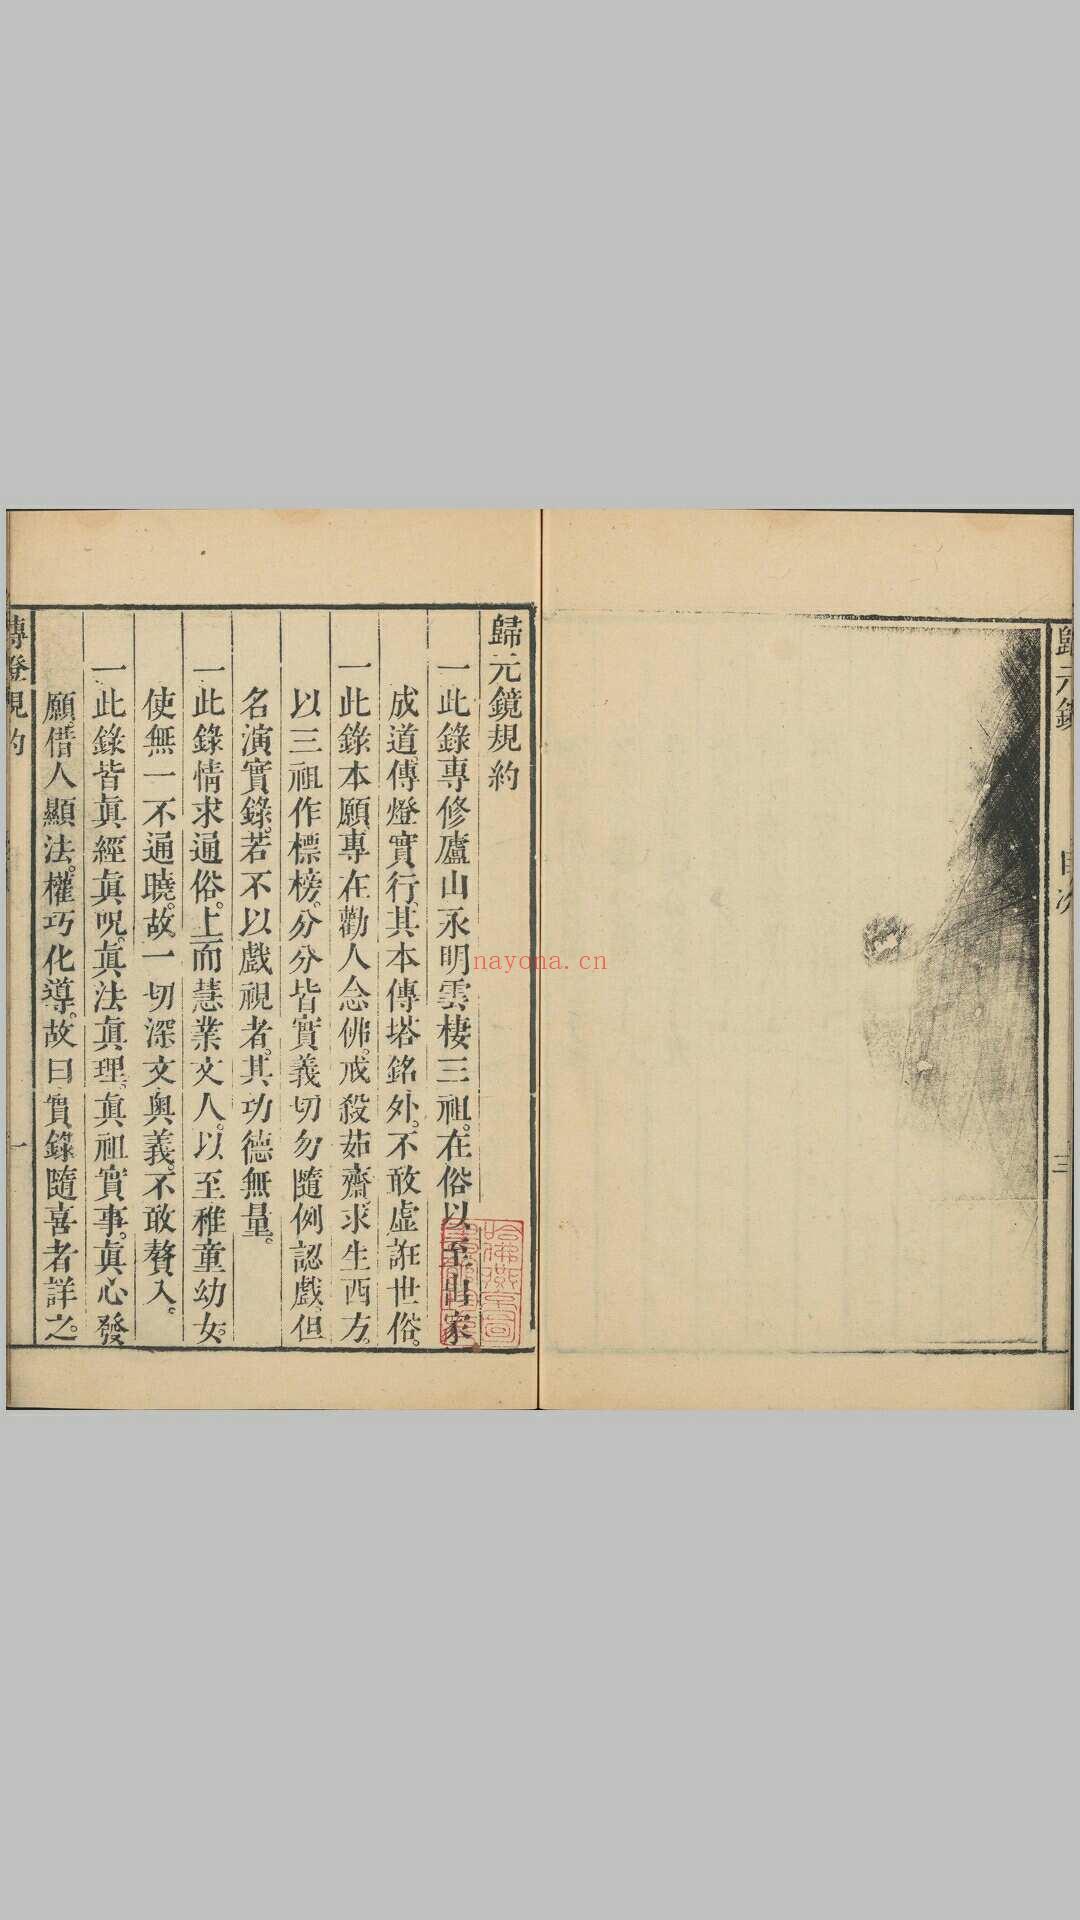 歸元鏡
目次
三
歸元鏡規約
一此錄專修廬山永明雲棲三祖。在俗以至出家
成道。傳燈實行。其本傳塔銘外。不敢虛誑世俗。
一此錄本願。專在勸人念佛。戒殺茹齋。求生西方。
以三祖作標榜。分分皆實義。切勿隨例認戲。但
名演實錄。若不以戲視者。其功德無量。
一此錄情求通俗。上而慧業文人。以至稚童幼女。
使無一不通曉。故一切深文奧義。不敢贅入。
一此錄皆眞經眞呪。眞法眞理。眞祖實事。眞心發
願。借人顯法。權巧化導。故曰實錄。隨喜者詳之。
傳燈規約
一
nayona.cn